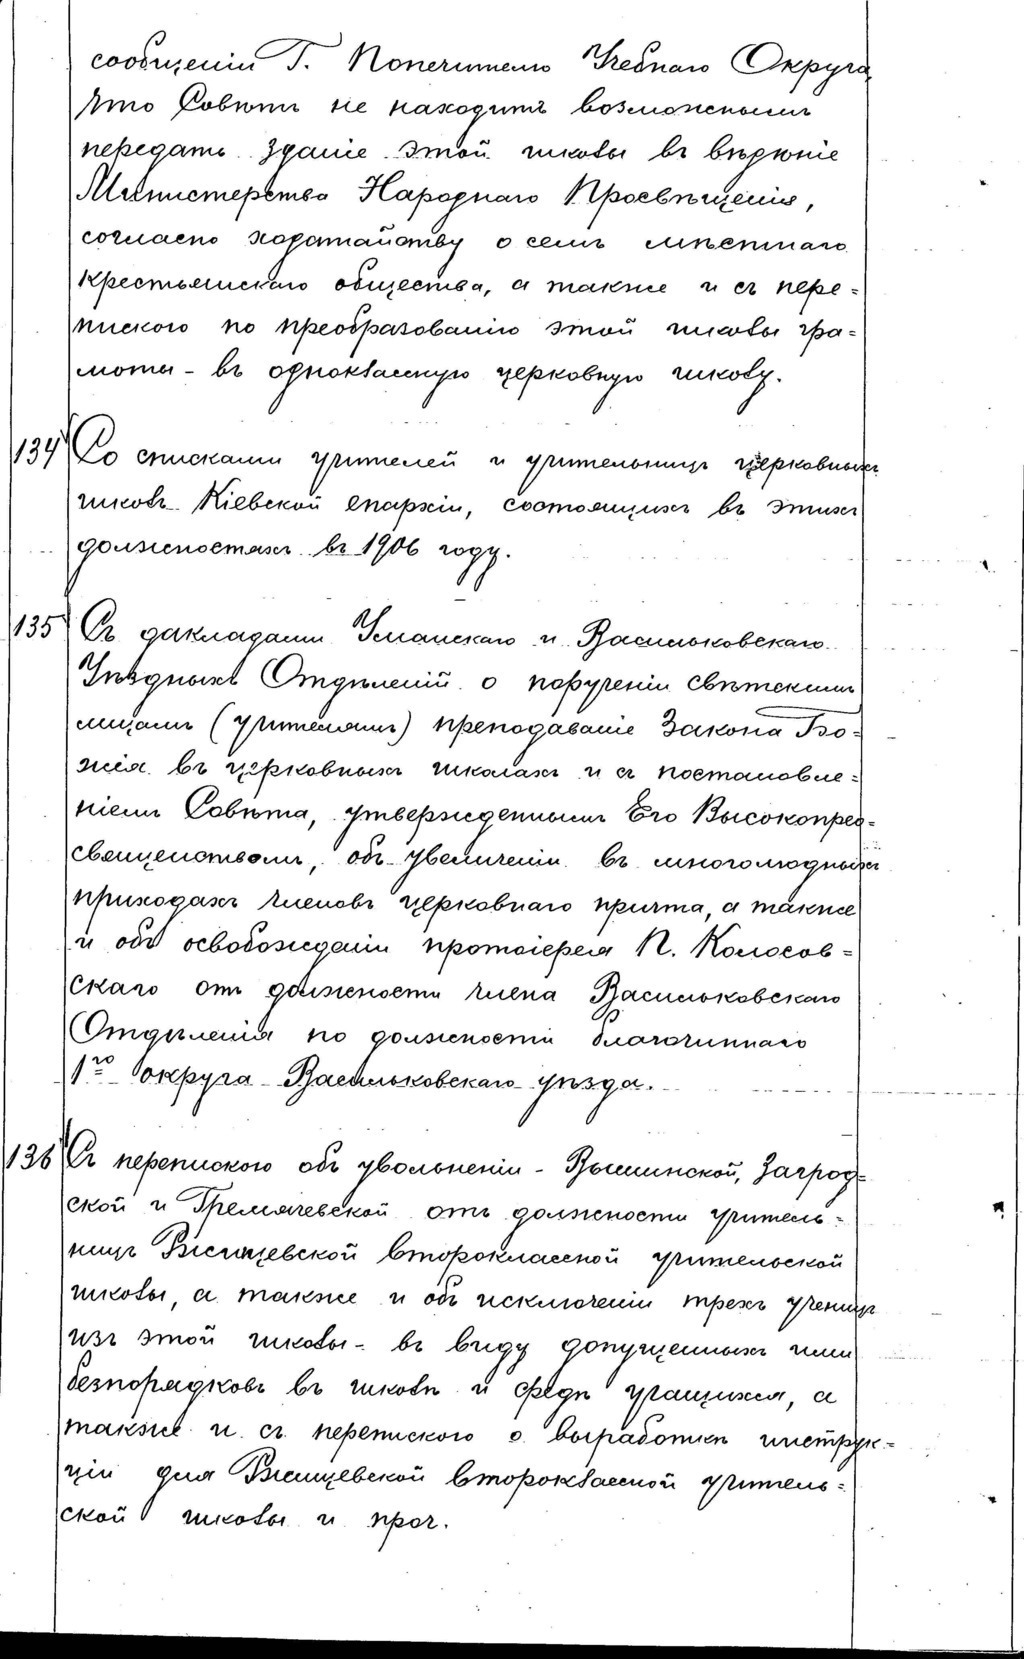 сообщеніи Г. Попечителю Учебнаго Округа,
что Совѣтъ не находитъ возможнымъ
передать зданіе этой школы въ вѣдѣніе
Министерства Народнаго Просвѣщенія,
согласно ходатайству о семъ мѣстнаго
крестьянскаго общества, а также и съ пере=
пискою по преобразованію этой школы гра=
моты - въ одноклассную церковную школу.
134 Со списками учителей и учительницъ церковныхъ
школъ Кіевской епархіи, состоящихъ въ этихъ
должностяхъ въ 1906 году.
135 Съ дакладами Уманскаго и Васильковскаго
Уѣздныхъ Отдѣленій о порученіи свѣтскимъ
лицамъ (учителямъ) преподаваніе Закона Бо=
жія въ церковныхъ школахъ и съ постановле=
ніемъ Совѣта, утвержденнымъ Его Высокопрео=
священствомъ, объ увеличеніи въ многолюдныхъ
приходахъ членовъ церковнаго причта, а также
и объ освобожденіи протоіерея П. Колосов=
скаго отъ должности члена Васильковскаго
Отдѣленія по должности благочиннаго
1го округа Васильковскаго уѣзда.
136 Съ перепискою объ увольненіи - Вышинской, Загрод=
ской и Гремячевской отъ должности учитель=
ницъ Ржищевской второклассной учительской
школы, а также и объ исключеніи трехъ ученицъ
изъ этой школы - въ виду допущенныхъ ими
безпорядковъ въ школѣ и средѣ учащихся, а
также и съ перепискою о выработкѣ инструк=
ціи для Ржищевской второклассной учитель=
ской школы и проч.